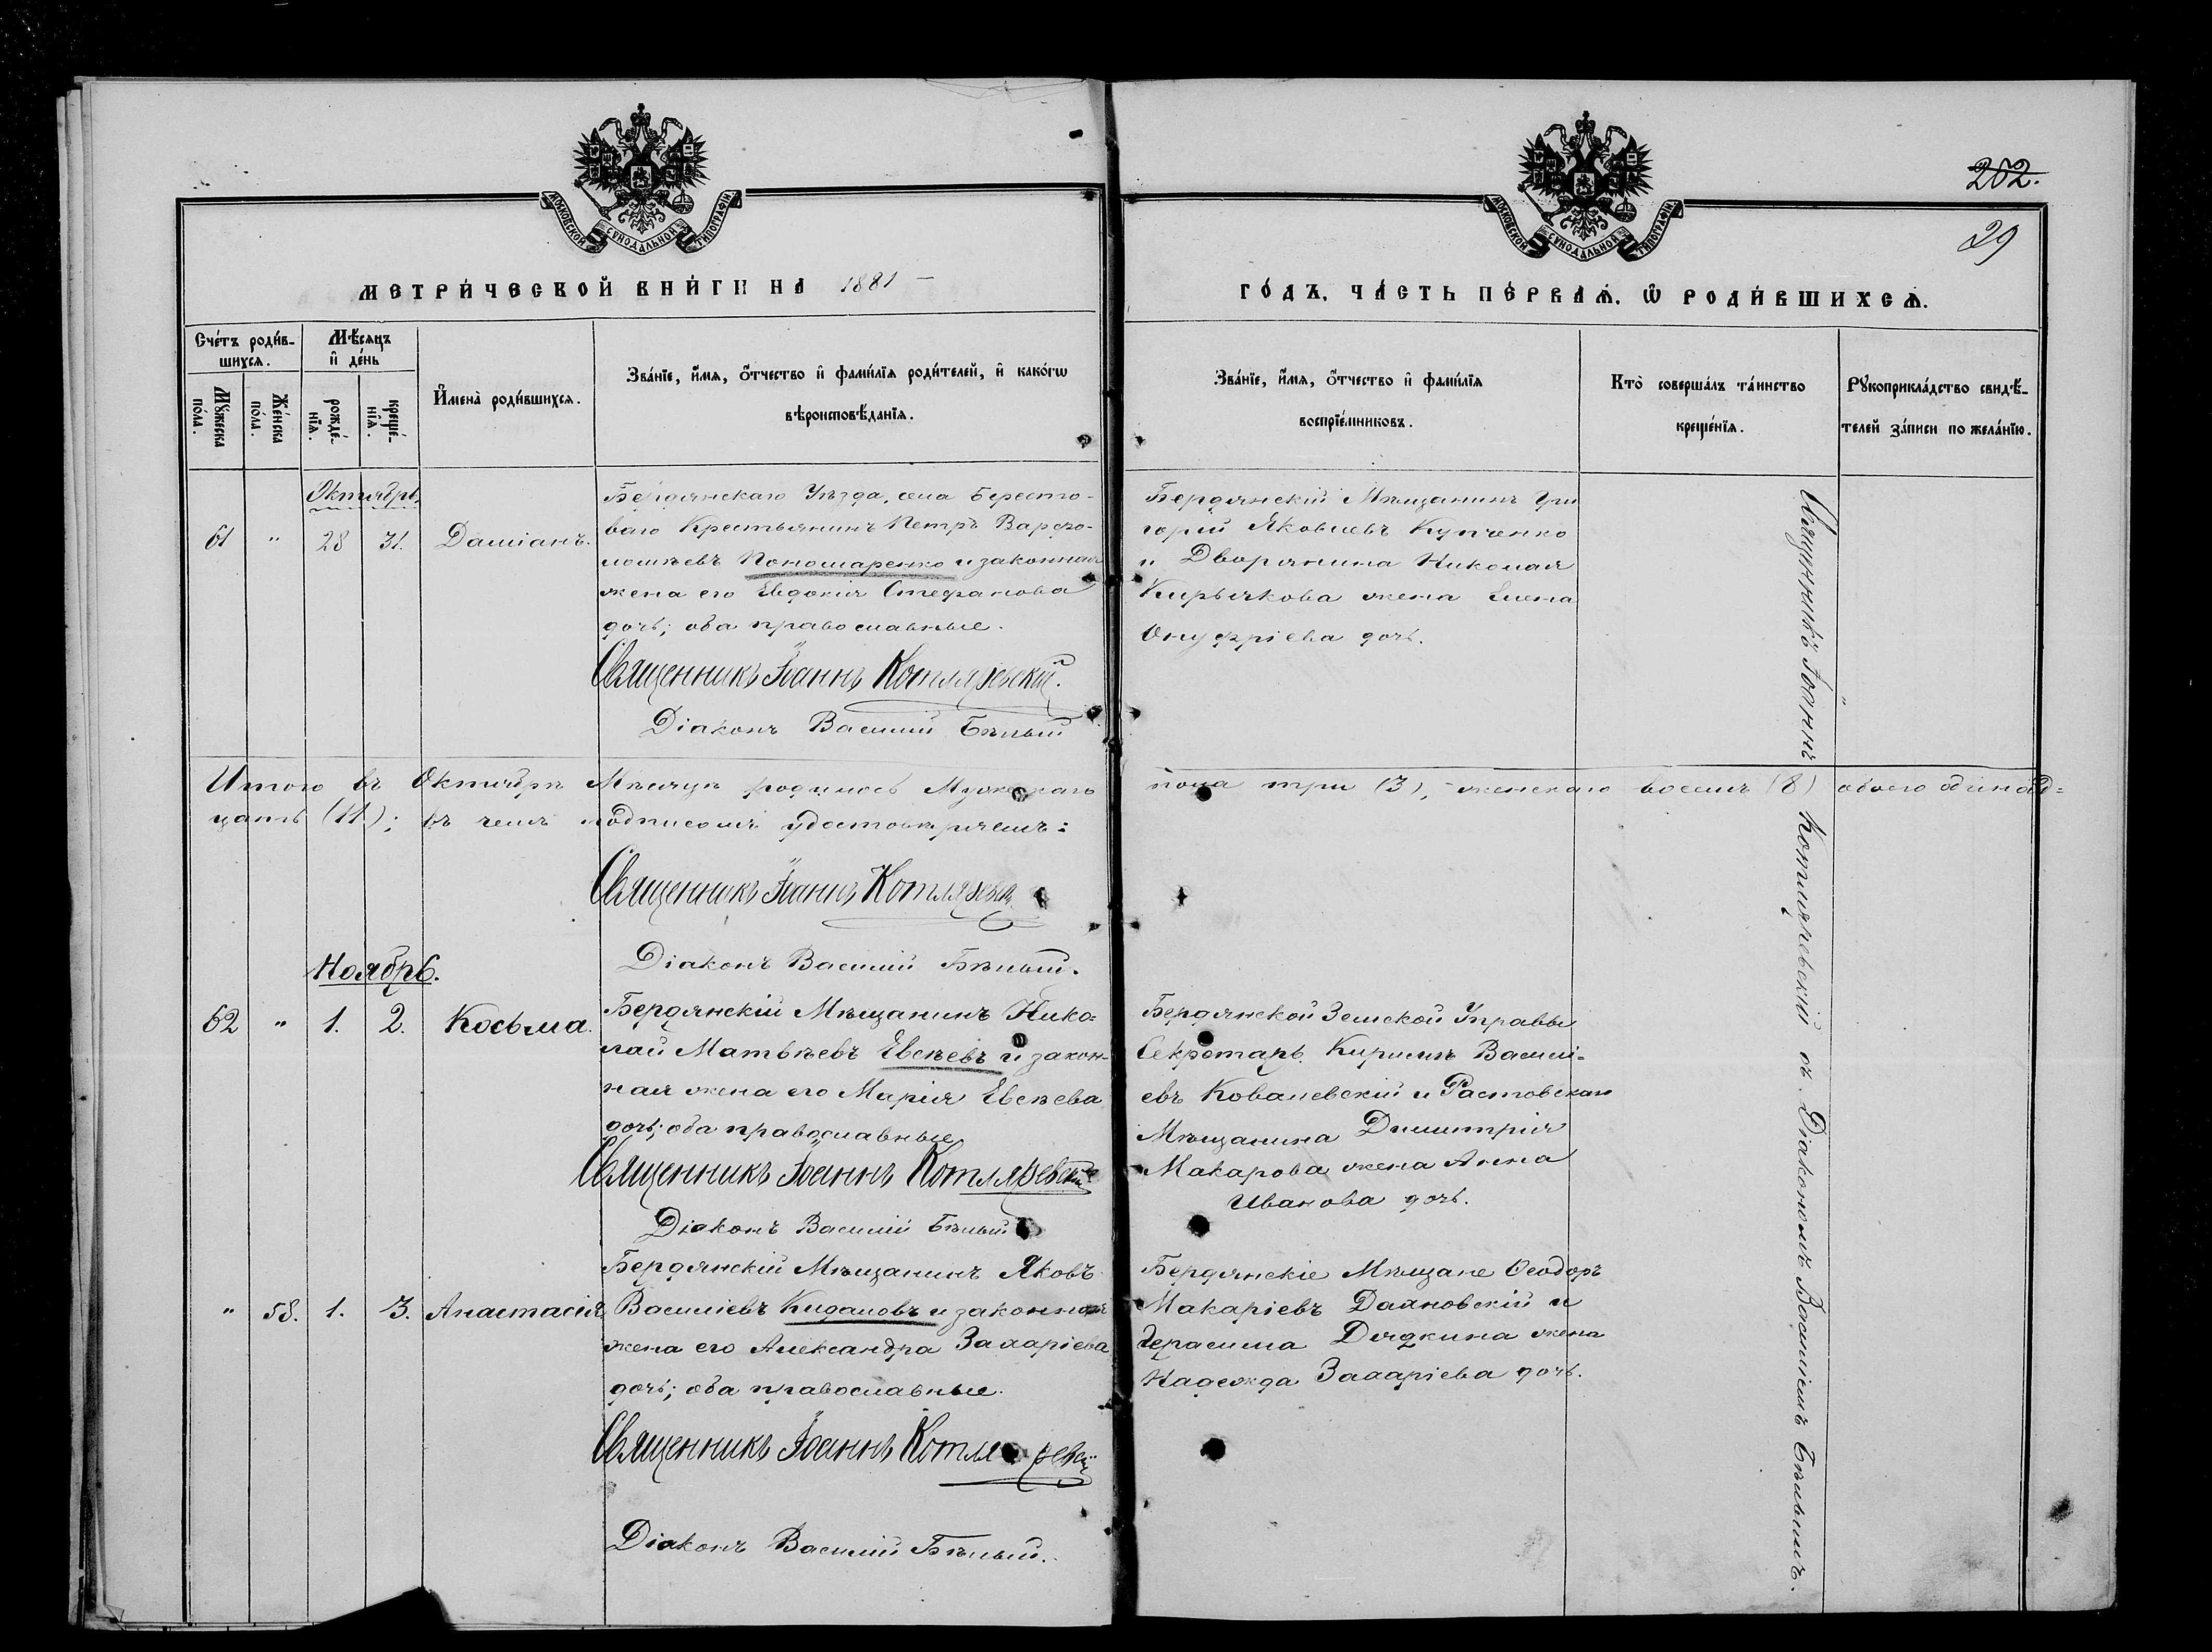 МОСКОВСКОЙ СУНОДАЛЬНОЙ ТИПОГРАФІИ
МОСКОВСКОЙ СУНОДАЛЬНОЙ ТИПОГРАФІИ
202.
29
МЕТРИ́ЧЕСКОЙ КНИ́ГИ НА 1881 —
ГО́ДЪ, ЧА́СТЬ ПЕ́РВАѦ, Ѡ РОДИ́ВШИХСѦ.
Сче́тъ роди́в-
шихсѧ.
Мѣ́сѧцъ
и де́нь
Мꙋ́жеска
по́ла.
Же́нска
по́ла.
рожде́-
нїѧ.
креще́-
нїѧ.
И҆мена̀ роди́вшихсѧ.
Зва́нїе, и҆́мѧ, ѻ҆́тчество и҆ фами́лїѧ роди́телей, и҆ како́гѡ
вѣроисповѣ́данїѧ.
Зва́нїе, и҆́мѧ, ѻ҆́тчество и҆ фами́лїѧ
воспрїе́мниковъ.
Кто̀ соверша́лъ та́инство
креще́нїѧ.
Рꙋкоприкла́дство свидѣ́-
телей за́писи по жела́нїю.
Октябрь
61 " 28 31. Даміанъ.
Бердянскаго Уѣзда, села Бересто-
ваго Крестьянинъ Петръ Варѳо-
ломѣевъ Пономаренко и законная
жена его Евдокія Стефанова
дочь; оба православные.
Священникъ Іоаннъ Котляревскій.
Діаконъ Василій Бѣлый
Бердянскій Мѣщанинъ Гри
горій Яковлевъ Купченко
и Дворянина Николая
Кирьякова жена Елена
Онуфріева дочь.
Священникъ Іоаннъ Котляревскій съ Діакономъ Василіемъ Бѣлымъ.
Итого въ Октябрѣ Мѣсяцѣ родилось Мужескаго пола три (3), женскаго восемь (8) обоего одинад=
цать (11); въ чемъ подписомъ удостовѣряемъ:
Священникъ Іоаннъ Котляревскій
Діаконъ Василій Бѣлый.
Ноябрь.
62 " 1. 2. Косьма.
Бердянскій Мѣщанинъ Нико=
лай Матвѣевъ Евсѣевъ и закон-
ная жена его Марія Евсѣева
дочь; оба православные
Священникъ Іоаннъ Котляревскій
Діаконъ Василій Бѣлый
Бердянской Земской Управы
Секретарь Кириллъ Василі-
евъ Ковалевскій и Растовскаго
Мѣщанина Димитрія
Макарова жена Анна
Иванова дочь.
" 58. 1. 3. Анастасія
Бердянскій Мѣщанинъ Яковъ
Василіевъ Кидаловъ и законная
жена его Александра Захаріева
дочь; оба православные.
Священникъ Іоаннъ Котляревскій
Діаконъ Василій Бѣлый.
Бердянскіе Мѣщане Ѳеодоръ
Макаріевъ Даяновскій и
Герасима Дядкина жена
Надежда Захаріева дочь.